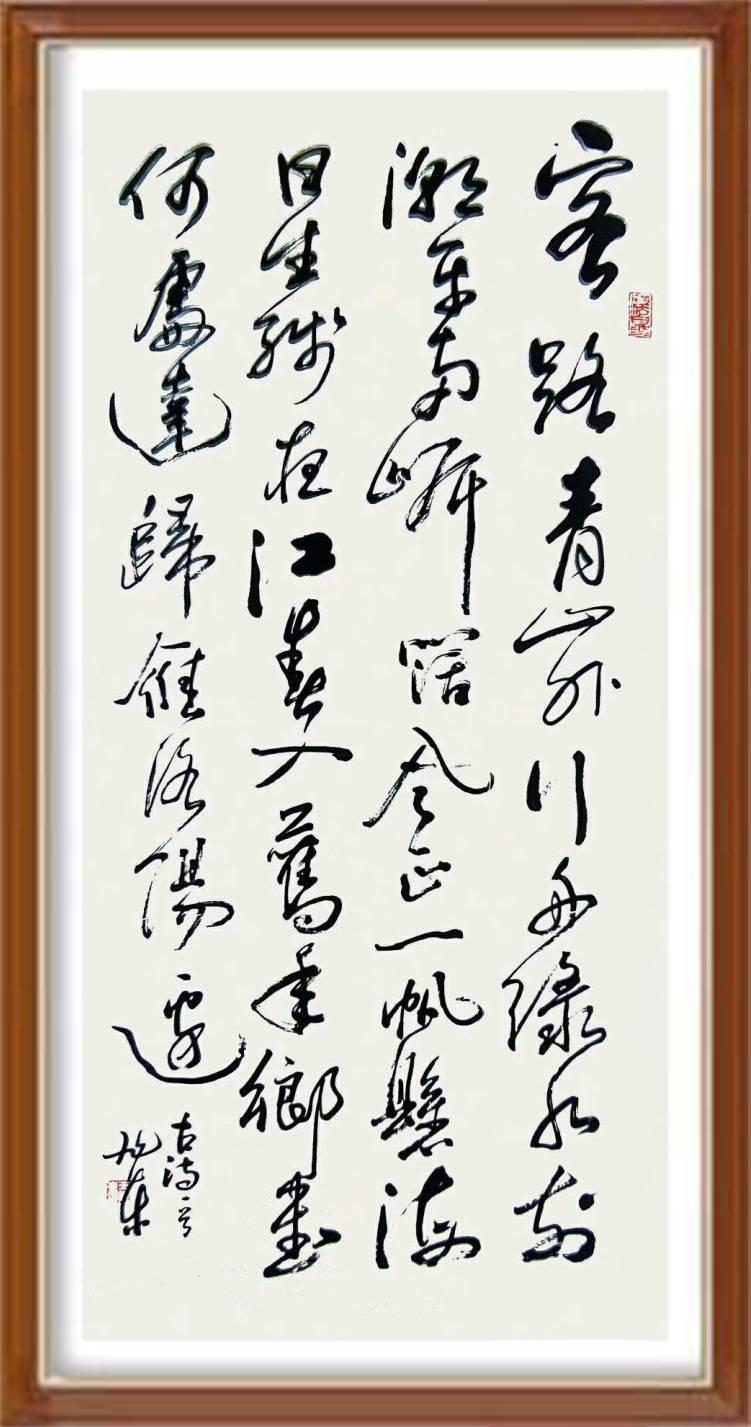 客路青山外行舟綠水前
潮平両岸闊风正一帆懸海
日生殘夜江春入舊年鄉書
何處達歸雁洛陽邊
古詩一首